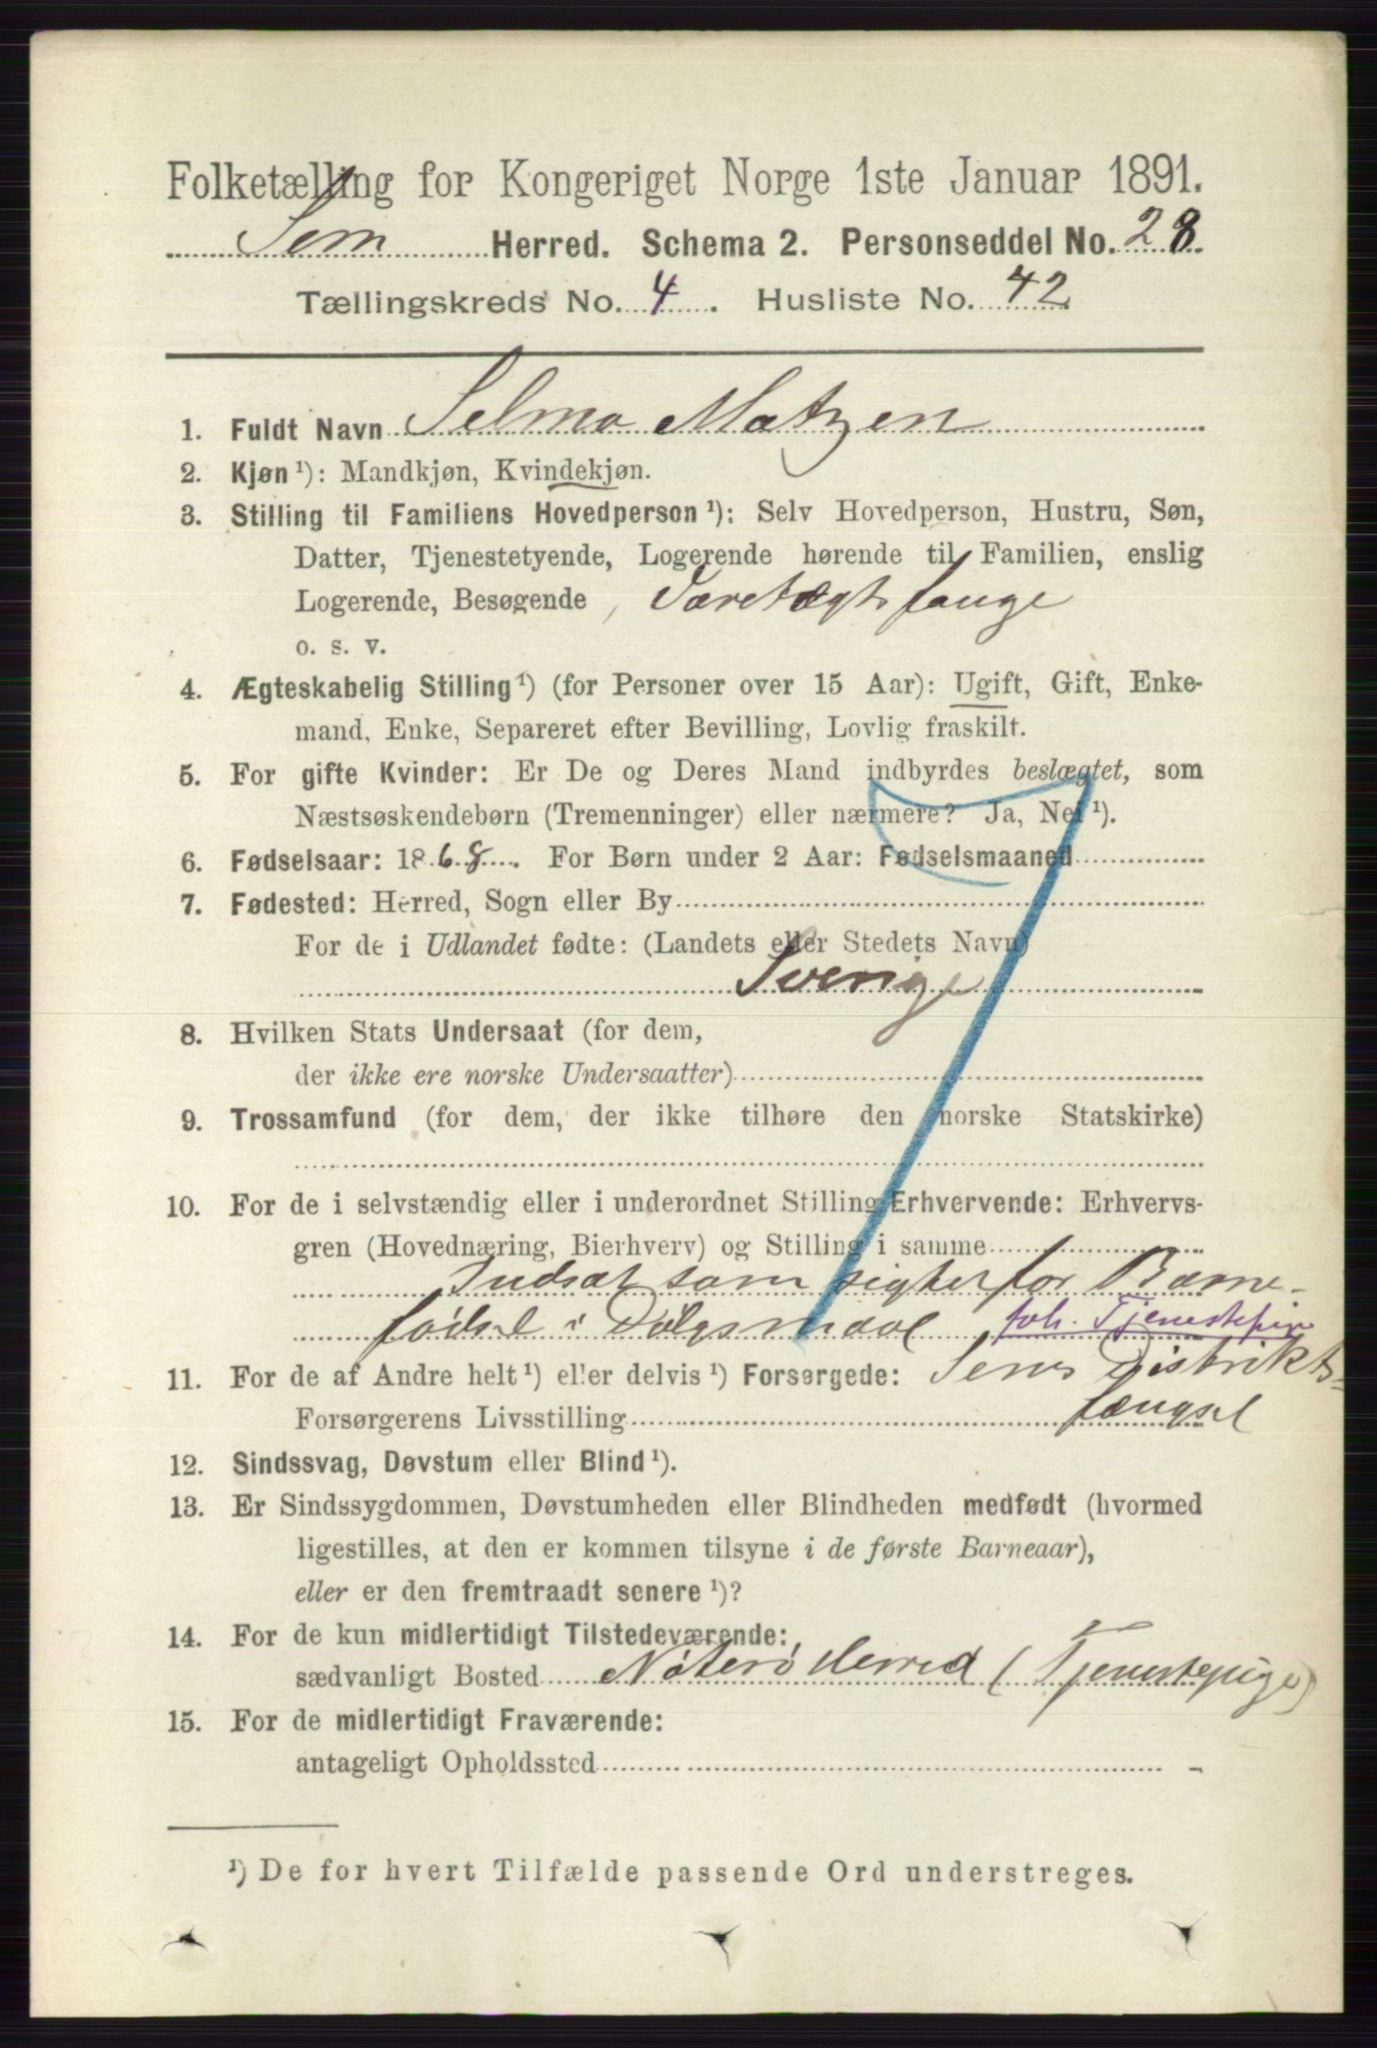 Folketælling for Kongeriget Norge 1ste Januar 1891.
Sem Herred. Schema 2. Personseddel No. 28
Tællingskreds No. 4. Husliste No. 42
1. Fuldt Navn Selma Matzen
2. Kjøn ¹): Mandkjøn, Kvindekjøn.
3. Stilling til Familiens Hovedperson ¹): Selv Hovedperson, Hustru, Søn,
Datter, Tjenestetyende, Logerende hørende til Familien, enslig
Logerende, Besøgende, Varetægtsfange
o. s. v.
4. Ægteskabelig Stilling ¹) (for Personer over 15 Aar): Ugift, Gift, Enke-
mand, Enke, Separeret efter Bevilling, Lovlig fraskilt.
5. For gifte Kvinder: Er De og Deres Mand indbyrdes beslægtet, som
Næstsøskendebørn (Tremenninger) eller nærmere? Ja, Nei ¹).
6. Fødselsaar: 1868. For Børn under 2 Aar: Fødselsmaaned
7. Fødested: Herred, Sogn eller By
For de i Udlandet fødte: (Landets eller Stedets Navn)
Sverige
8. Hvilken Stats Undersaat (for dem,
der ikke ere norske Undersaatter)
9. Trossamfund (for dem, der ikke tilhøre den norske Statskirke)
10. For de i selvstændig eller i underordnet Stilling Erhvervende: Erhvervs-
gren (Hovednæring, Bierhverv) og Stilling i samme
Indsat som sigtet for Barne-
fødsel i Dølgsmaal fvh. Tjenestepige
11. For de af Andre helt ¹) eller delvis ¹) Forsørgede: Sems Distrikts=
Forsørgerens Livsstilling fængsel
12. Sindssvag, Døvstum eller Blind ¹).
13. Er Sindssygdommen, Døvstumheden eller Blindheden medfødt (hvormed
ligestilles, at den er kommen tilsyne i de første Barneaar),
eller er den fremtraadt senere ¹)?
14. For de kun midlertidigt Tilstedeværende:
sædvanligt Bosted Nøterø Herred (Tjenestepige)
15. For de midlertidigt Fraværende:
antageligt Opholdssted
¹) De for hvert Tilfælde passende Ord understreges.